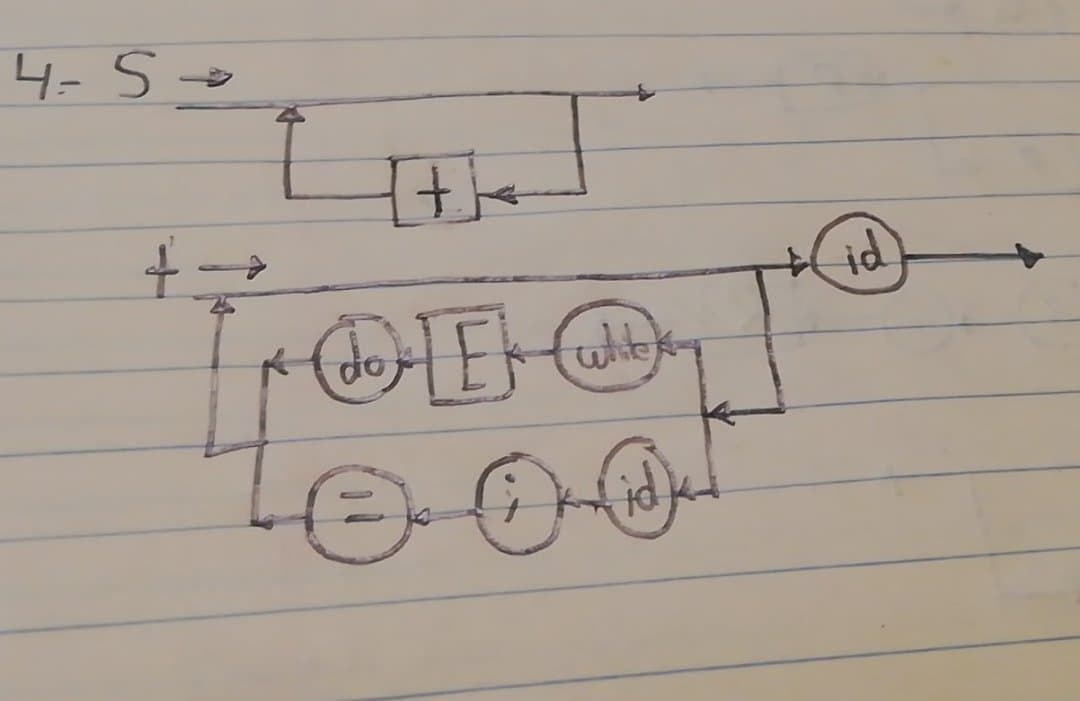 4.- S →
+
+ → id
do E while
= ; id